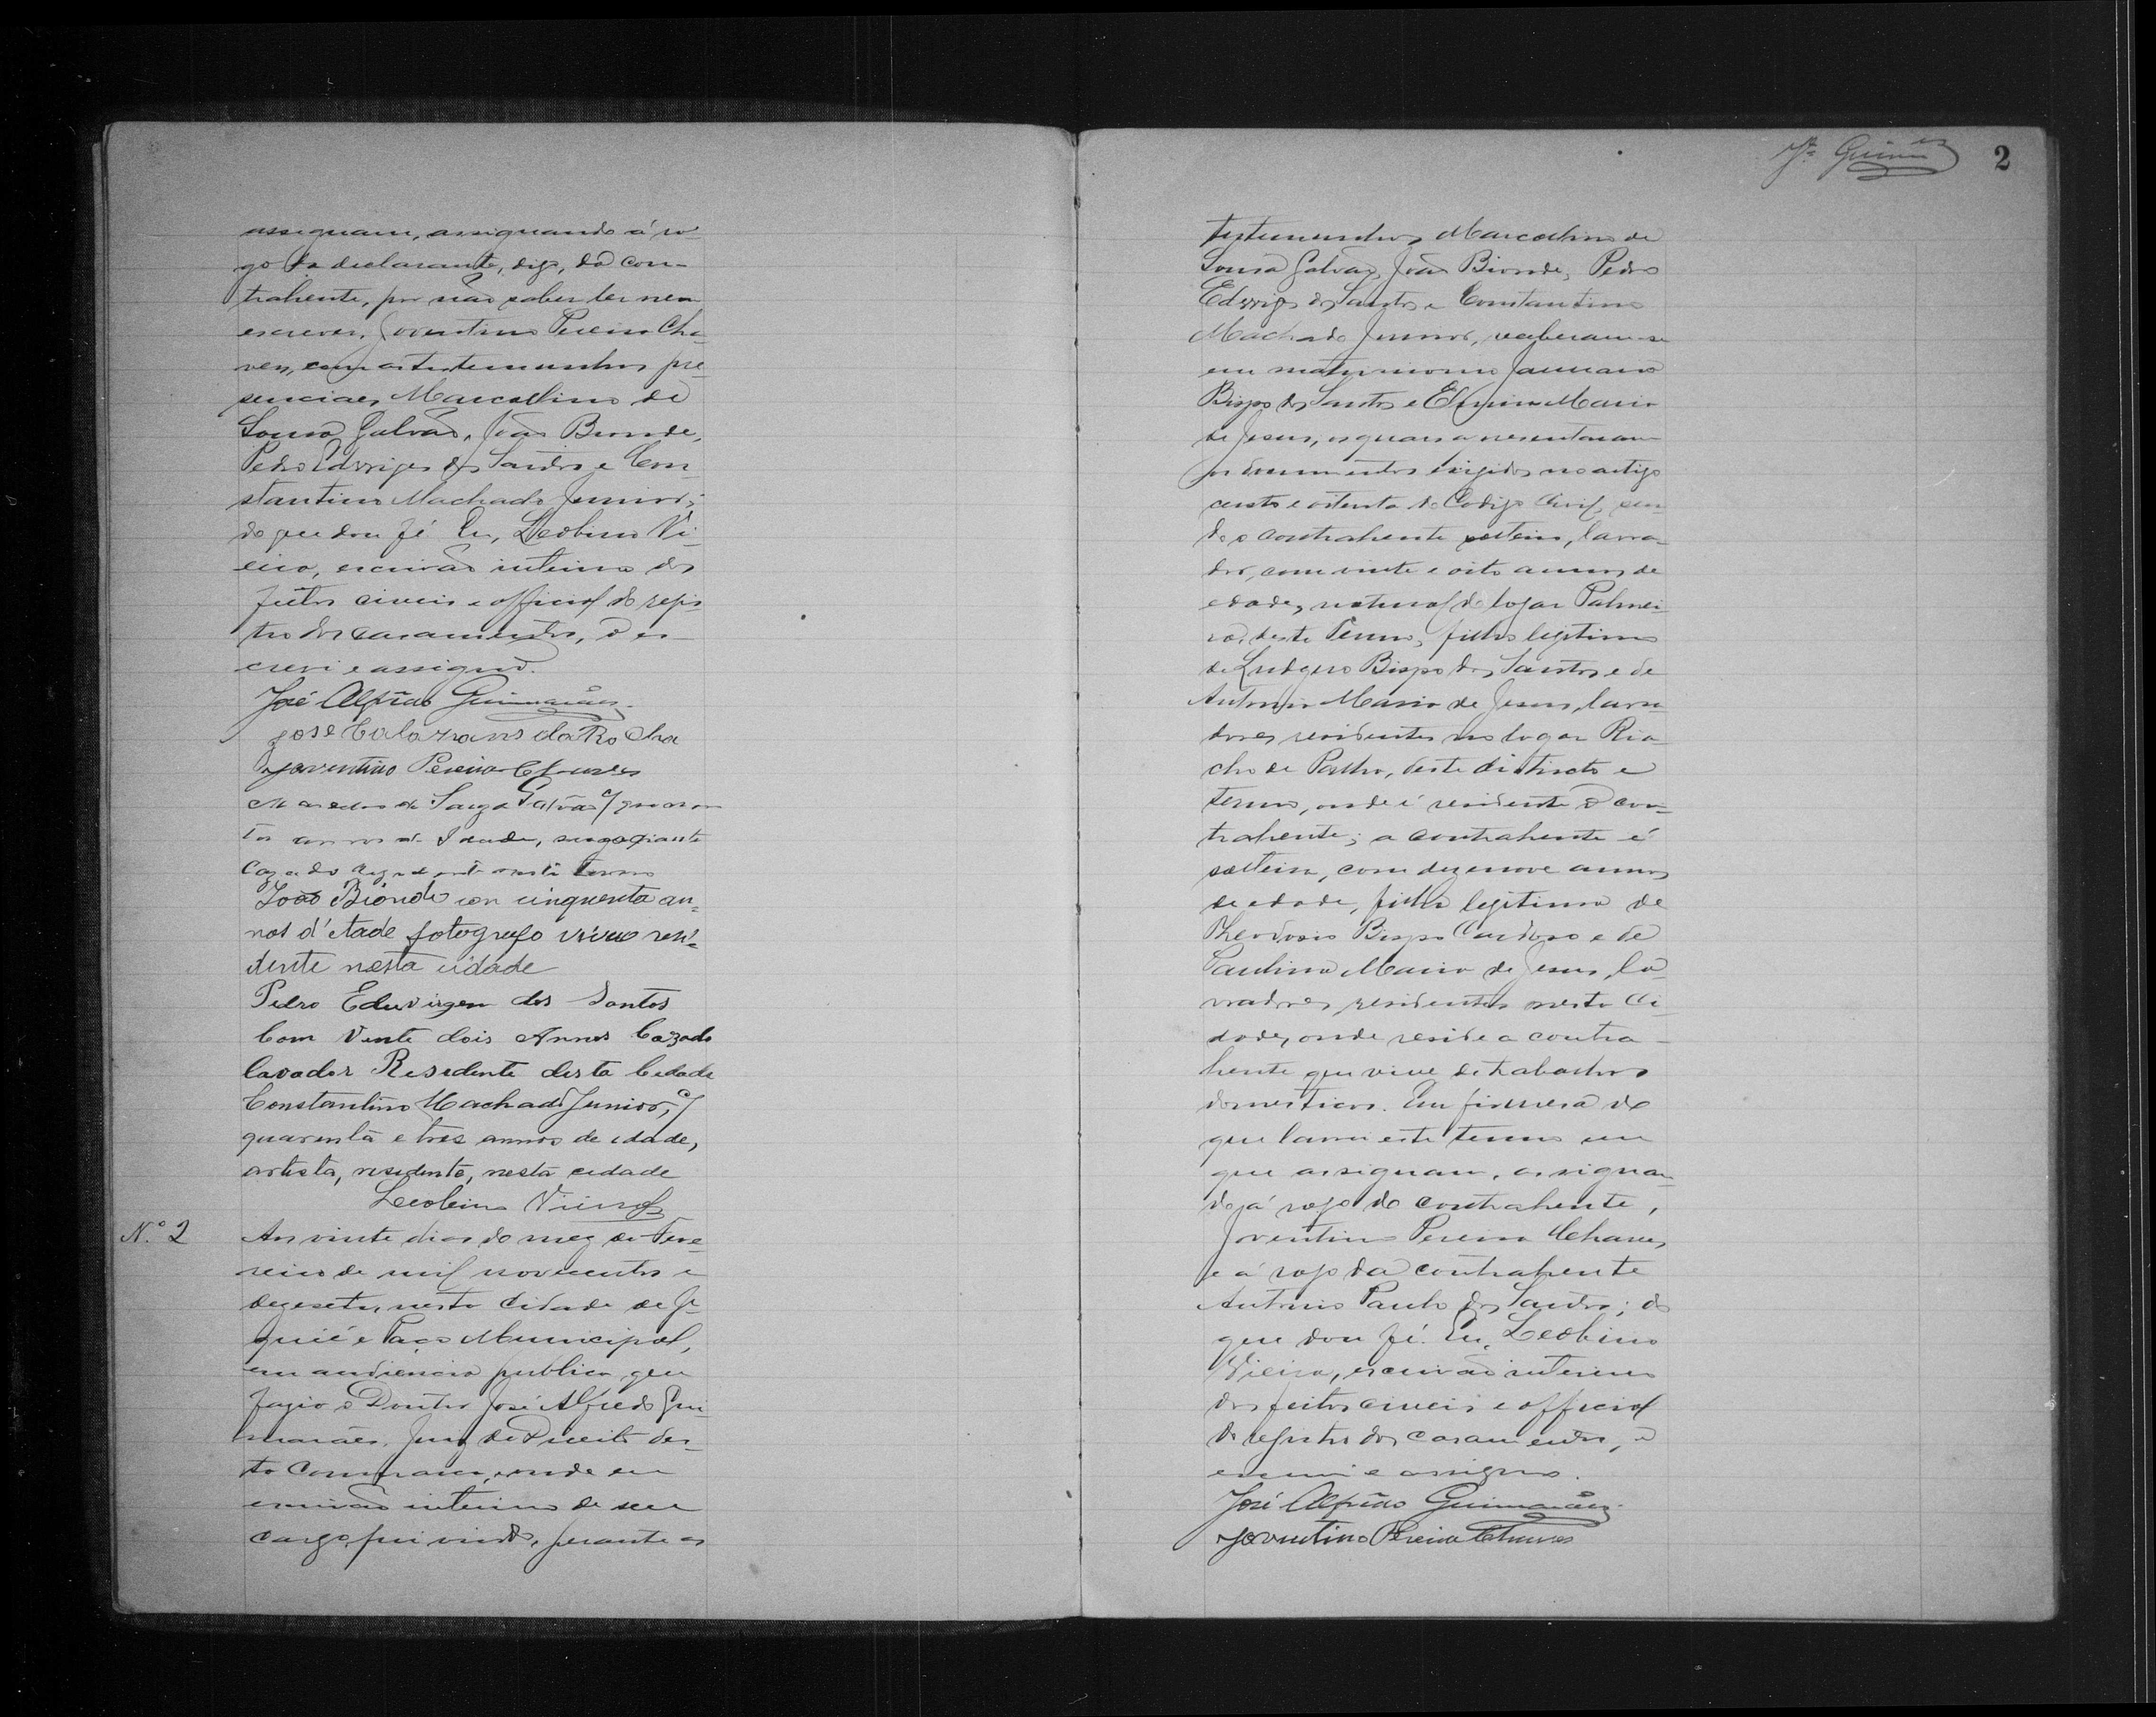 assignam, assignando á ro-
go da declarante, digo, da con-
trahente, por não saber ler nem
escrever, Joventino Pereira Cha-
ves, com as testemunhas pre-
senciaes Marcellino de
Souza Galvão, João Bionde,
Pedro Edwiges dos Santos e Con-
stantino Machado Junior;
do que dou fé. Eu, Leobino Vi-
eira, escrivão interino dos
feitos civeis e official do regis-
tro dos casamentos, o es-
crevi e assigno.
José Alfredo Guimarães.
José Calazans da Rocha
Joventino Pereira Chaves
de Souza Galvão c/
annos de Idade, negociante
Cazado neste termo
João Bionde con cinquenta an-
nos d'etade fotografo viuvo resi-
dente nesta cidade
Pedro Eduvirgen dos Santos
Com Vente dois Annos Cazado
lavador Residente desta Cedade
Constantino Machado Junior, c/
quarenta e tres annos de idade,
artista, residente, nesta cidade
Leobino Vieira
N.º 2
Aos vinte dias do mez de Feve-
reiro de mil novecentos e
dezesete, nesta Cidade de Je-
quié e Paço Municipal,
em audiencia publica que
fazia o Doutor José Alfredo Gui-
marães, Juiz de Direito des-
ta Commarca, onde eu
escrivão interino de seu
cargo fui vindo, perante as
2
testemunhas Marcellino de
Souza Galvão, João Bionde, Pedro
Edwiges dos Santos e Constantino
Machado Junior, receberam-se
em matrimonio Januario
Bispo dos Santos e Maria
de Jesus, os quaes apresentaram
os documentos exigidos no artigo
cento e oitenta do Codigo Civil, sen-
do o contrahente solteiro, lavra-
dor, com vinte e oito annos de
edade, natural do logar Palmei-
ra, deste Termo, filho legitimo
de Ludgero Bispo dos Santos e de
Antonia Maria de Jesus, lavra-
dores residentes no logar Ria-
cho de Palha, deste districto e
termo, onde é residente o con-
trahente; a contrahente é
solteira, com dezenove annos
de edade, filha legitima de
Theodosio Bispo Cardoso e de
Paulina Maria de Jesus, la-
vradores, residentes nesta Ci-
dade, onde reside a contra-
hente que vive de trabalhos
domesticos. Em firmesa do
que lavrei este termo em
que assignam, assignan-
do á rogo do contrahente,
Joventino Pereira Chaves,
e á rogo da contrahente
Antonio Paulo dos Santos; do
que dou fé. Eu, Leobino
Vieira, escrivão interino
dos feitos civeis e official
do registro dos casamentos, o
escrevi e assigno.
José Alfredo Guimarães.
Joventino Pereira Chaves